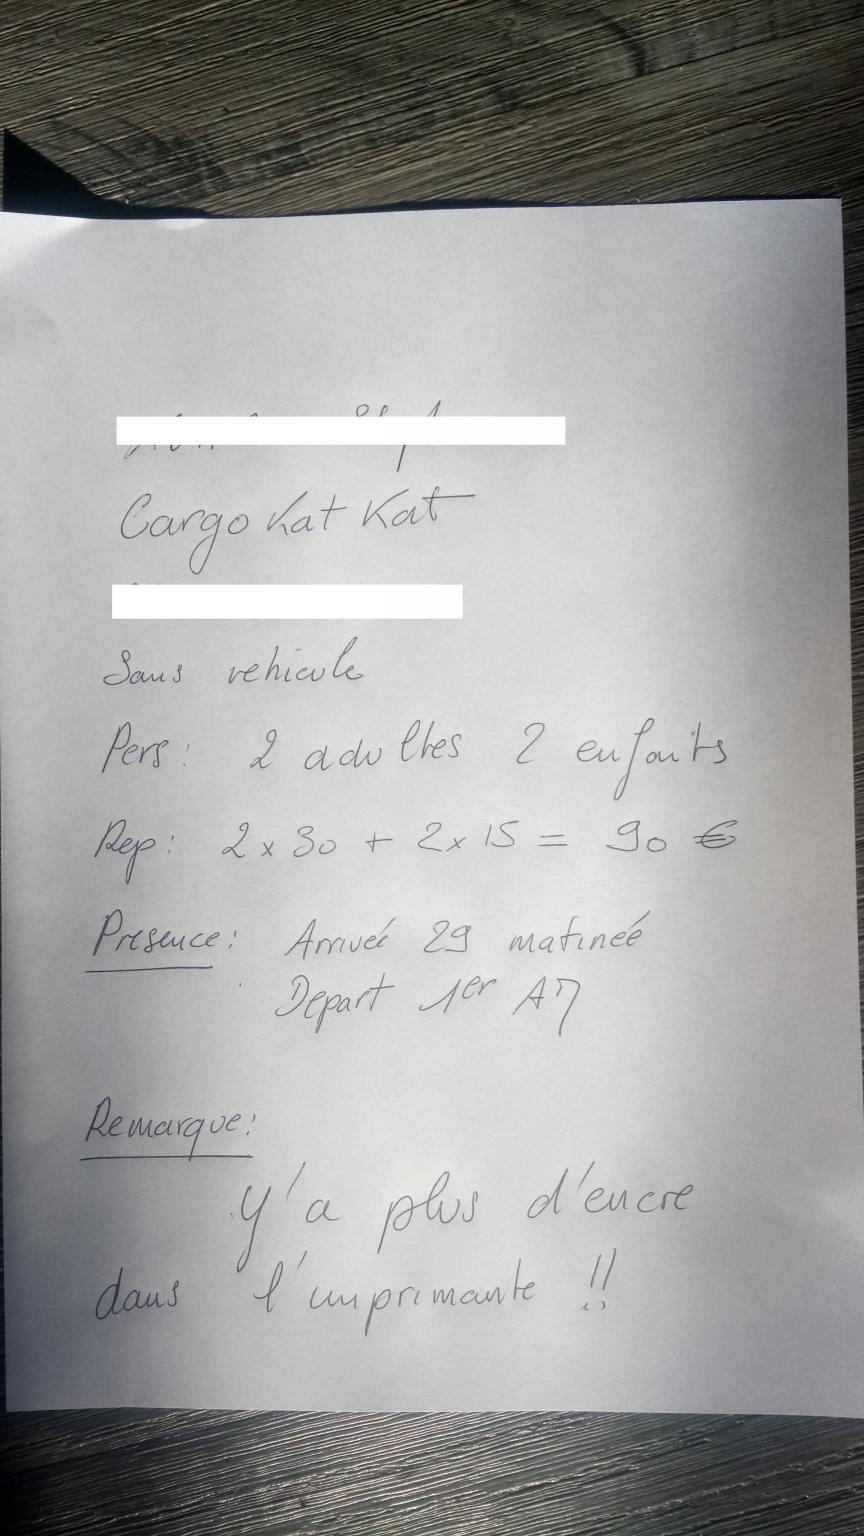 Cargo Kat Kat
Sans vehicule
Pers: 2 adultes 2 enfants
Rep: 2 x 30 + 2 x 15 = 90 €
Presence: Arrivée 29 matinée
Depart 1er AM
Remarque:
Y'a plus d'encre
dans l'imprimante !!